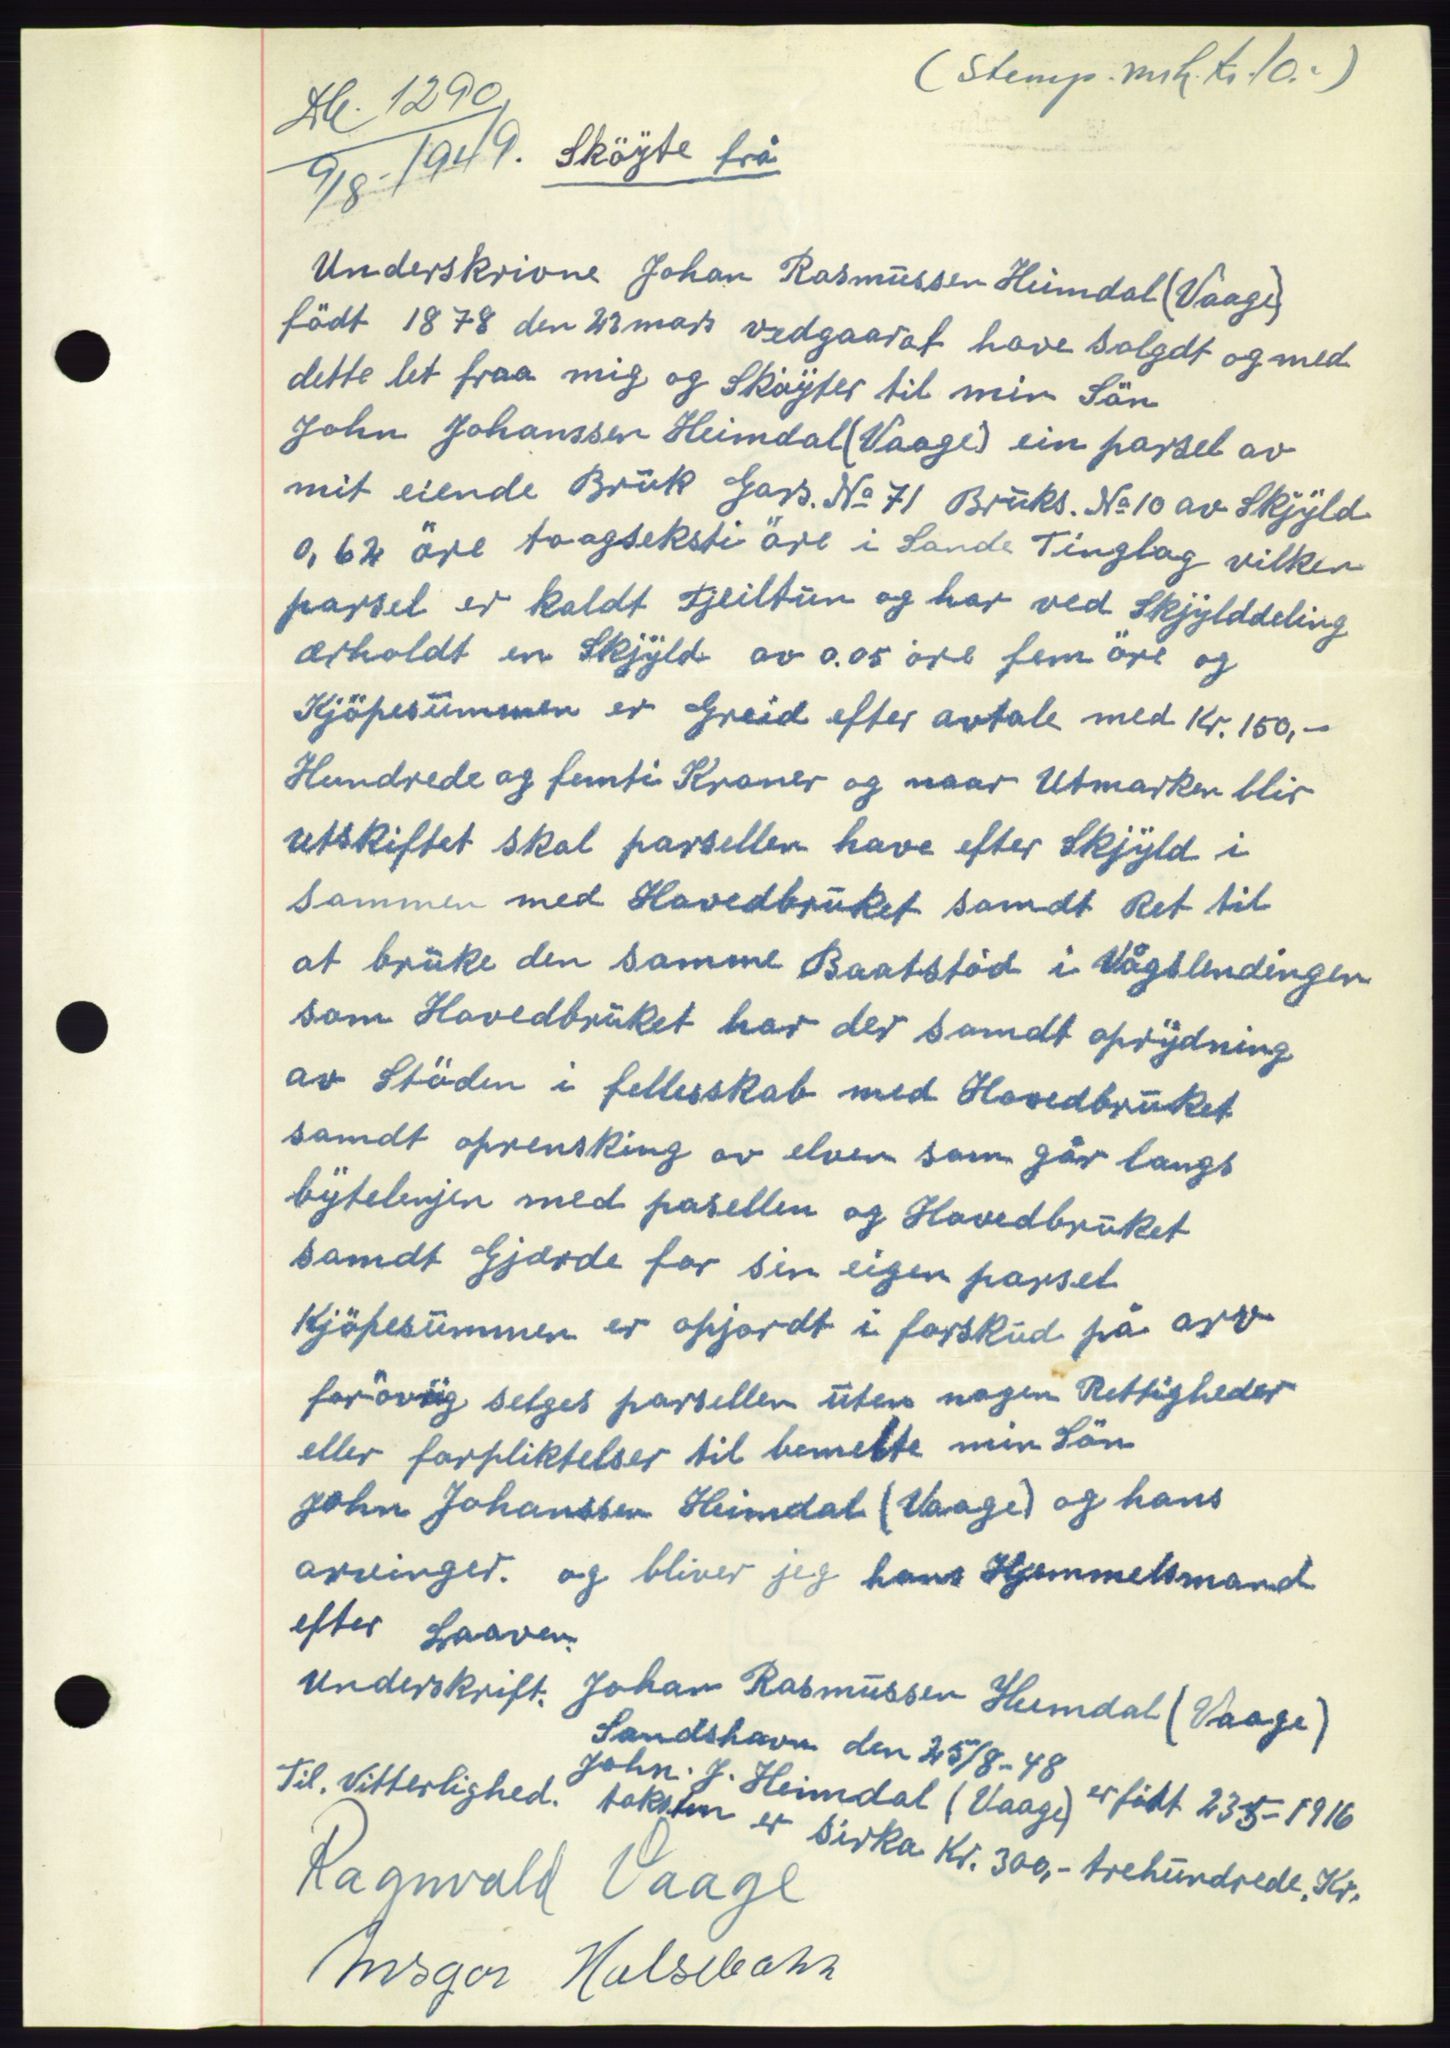 (Stemp. mrk. kr. 10.-)
Db. 1290
9/8-1949.
Sköyte frå
Underskrivne Johan Rasmussen Heimdal (Vaage)
födt 1878 den 23 mars vedgaarat have solgdt og med
dette let fraa mig og Sköyter til min Sön
John Johanssen Heimdal (Vaage) ein parsel av
mit eiende Bruk Gars. No 71 Bruks. No 10 av Skjyld
0,62 öre toogseksti öre i Sande Tinglag vilken
parsel er kaldt Fjeiltun og har ved Skjylddeling
ærholdt en Skjyld av 0.05 öre fem öre og
Kjöpesummen er Greid efter avtale med Kr. 150,-
Hundrede og femti Kroner og naar Utmarken blir
utskiftet skal parsellen have efter Skjyld i
sammen med Hovedbruket samdt Ret til
at bruke den samme Baatstöd i Vågslendingen
som Hovedbruket har der samdt oprydning
av Stöden i fellesskab med Hovedbruket
samdt oprensking av elven som går langs
bytelenjen med pasellen og Hovedbruket
samdt Gjærde for sin eigen parsel
Kjöpesummen er opjordt i forskud på arv
forövrig selges parsellen uten nogen Rettigheder
eller forpliktelser til bemelte min Sön
John Johanssen Heimdal (Vaage) og hans
arvinger. og bliver jeg hans Hjemmelsmand
efter Laaven.
Underskrift. Johan Rasmussen Heimdal (Vaage)
Sandshavn den 25/8-48
John. J. Heimdal (Vaage) er födt 23 5-1916
Til. Vitterlighed. taksten er sirka Kr. 300,- trehundrede. Kr.
Ragnvald Vaage
Ansgar Halsebakk